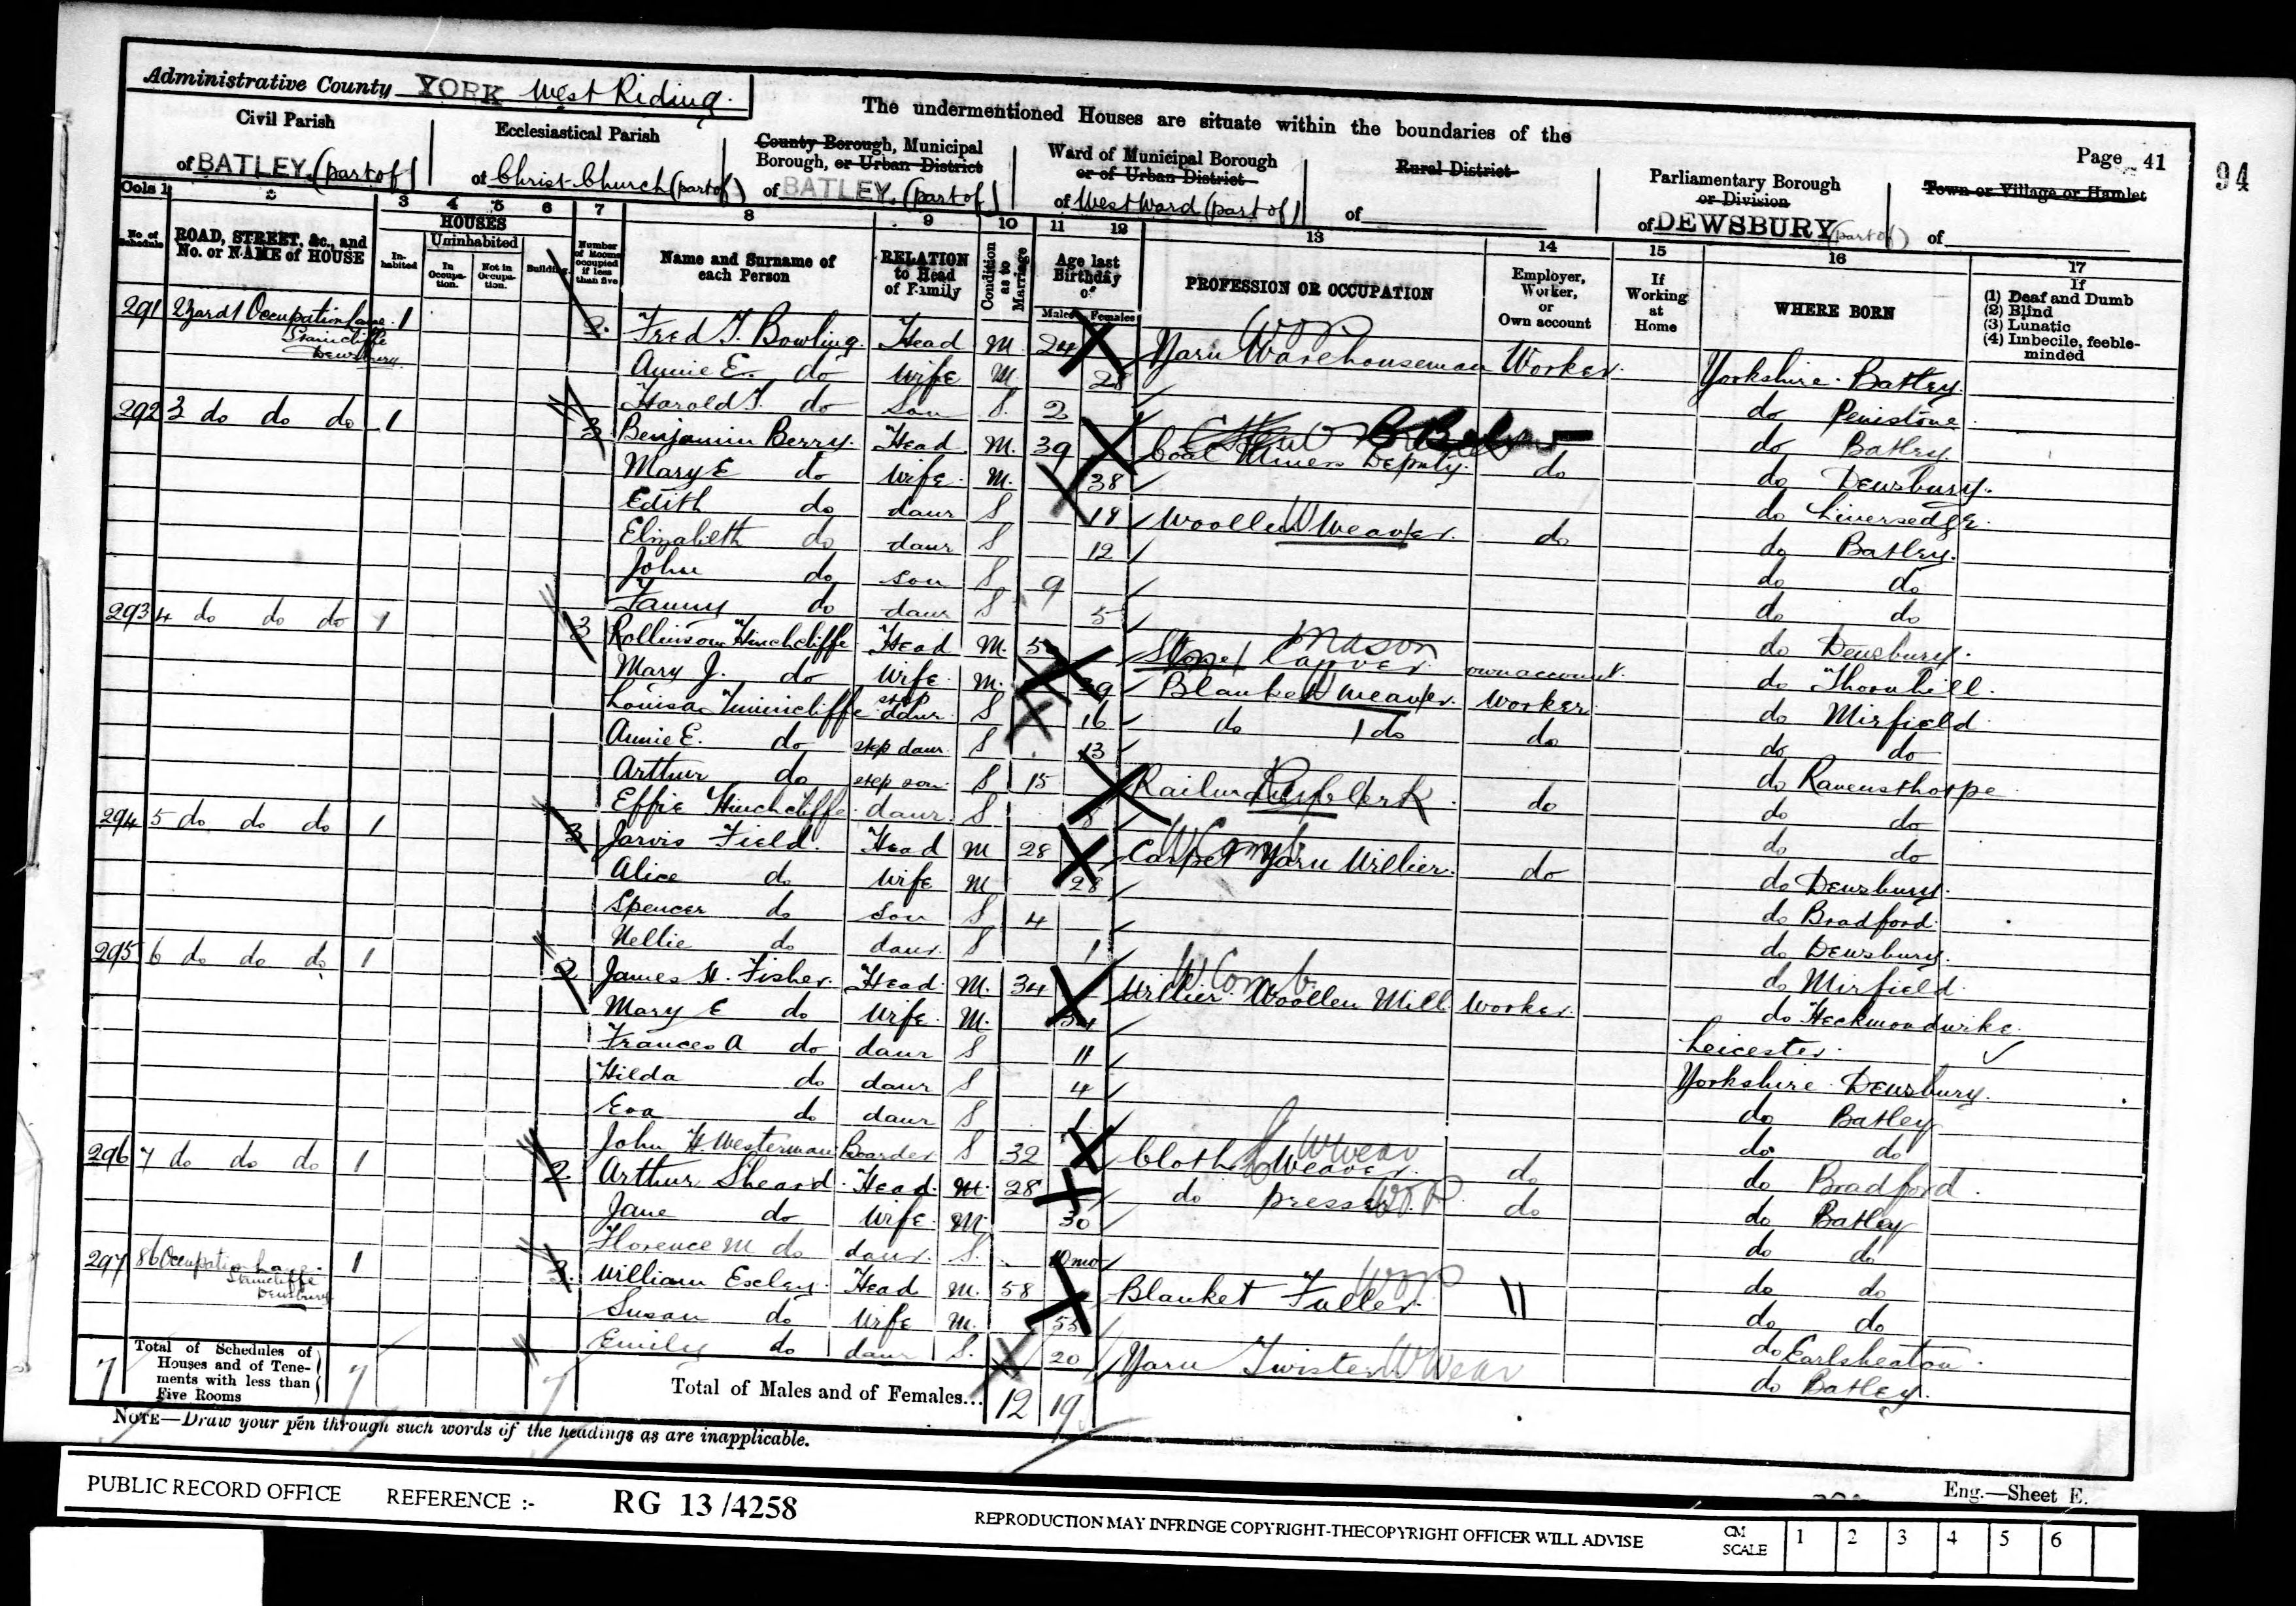 Administrative County YORK West Riding.
The undermentioned Houses are situate within the boundaries of the
Page 41
94
Civil Parish
of BATLEY (part of)
Ecclesiastical Parish
of Christ Church (part of)
County Borough, Municipal
Borough, or Urban District
of BATLEY. (part of)
Ward of Municipal Borough
or of Urban District
of West Ward (part of)
Rural District
of
Parliamentary Borough
or Division
of DEWSBURY (part of)
Town or Village or Hamlet
of
Cols 1 2 3 4 5 6 7 8 9 10 11 12 13 14 15 16 17
No. of Schedule
ROAD, STREET, &c., and No. or NAME of HOUSE
HOUSES
Inhabited
Uninhabited
In Occupation.
Not in Occupation.
Building
Number of Rooms occupied if less than five
Name and Surname of each Person
RELATION to Head of Family
Condition as to Marriage
Age last Birthday of
Males Females
PROFESSION OR OCCUPATION
Employer, Worker, or Own account
If Working at Home
WHERE BORN
If
(1) Deaf and Dumb
(2) Blind
(3) Lunatic
(4) Imbecile, feeble-minded
291 Occupation Lane Staincliffe Dewsbury 1 2 Fred T. Bowling Head M 24 Yarn Warehouseman Worker Yorkshire Batley
Annie E. do Wife M 28 do Penistone
Harold T. do Son S. 2 do Batley
292 3 do do do 1 3 Benjamin Berry. Head M. 39 Coal Miners Deputy. do do Dewsbury.
Mary E do Wife M. 38 do Liversedge.
Edith do daur S 19 Woollen Weaver. do do Batley.
Elizabeth do daur S 12 do do
John do son S 9 do do
Fanny do daur S 5 do Dewsbury.
293 4 do do do 1 3 Rollinson Hinchcliffe Head M. Stone Mason own account do Thornhill.
Mary J. do Wife M. 39 Blanket Weaver. Worker do Mirfield
Louisa step daur S 16 do do do do do
Annie E. do step daur S 13 do Ravensthorpe
Arthur do step son S 15 Railway Clerk do do do
Effie Hinchcliffe daur. S 8 do do
294 5 do do do 1 3 Jarvis Field. Head M 28 Carpet Yarn Willier. do do Dewsbury.
Alice do Wife M 28 do Bradford
Spencer do Son S 4 do Dewsbury.
Nellie do daur. S 1 do Mirfield
295 6 do do do 1 2 James H. Fisher. Head M. 34 Willier Woollen Mill Worker do Heckmondwike
Mary E do Wife M. 34 Leicester
Frances A do daur S 11 Yorkshire Dewsbury.
Hilda do daur S 4 do Batley
Eva do daur S 1 do do
John H. Westerman Boarder S 32 Cloth Weaver do do Bradford
296 7 do do do 1 2 Arthur Sheard Head M 28 do presser do do Batley
Jane do Wife M 30 do do
Florence M do daur. S. 10 mo do do
297 86 Occupation Lane Staincliffe Dewsbury 1 3 William Exley Head M. 58 Blanket Fuller. 11 do do
Susan do Wife M. 55 do Earlsheaton
Emily do daur S. 20 Yarn Twister do Batley.
7 Total of Schedules of Houses and of Tenements with less than Five Rooms 7 7 Total of Males and of Females... 12 19
NOTE—Draw your pen through such words of the headings as are inapplicable.
Eng.—Sheet E.
PUBLIC RECORD OFFICE REFERENCE :- RG 13/4258
REPRODUCTION MAY INFRINGE COPYRIGHT-THECOPYRIGHT OFFICER WILL ADVISE
CM SCALE 1 2 3 4 5 6